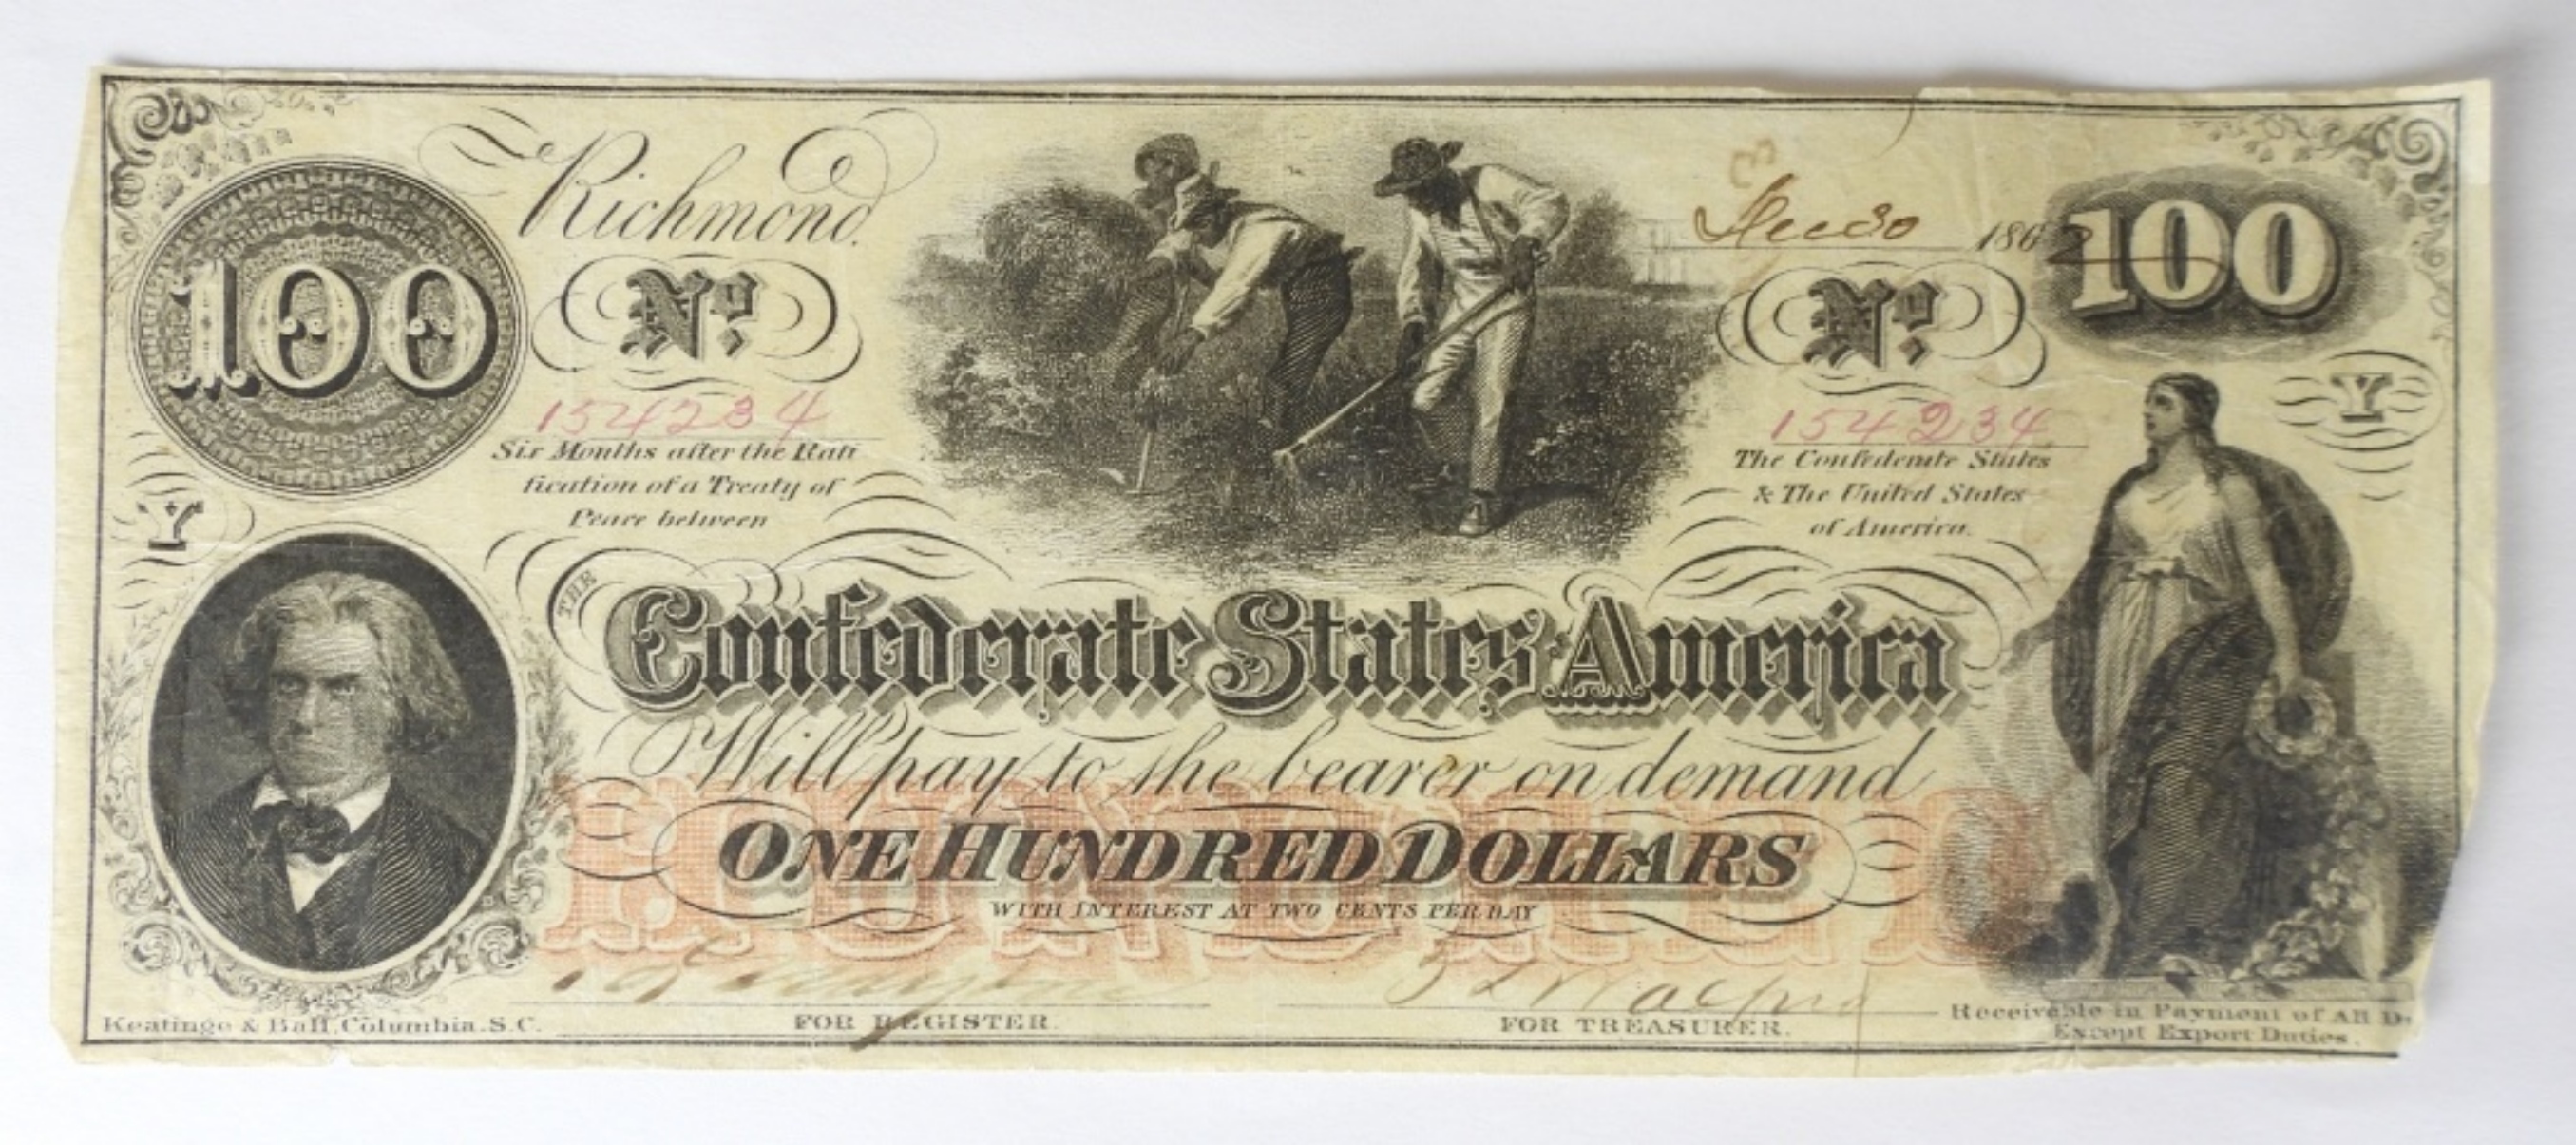 Richmond.
186
100
100
No.
No.
154234
154234
Six Months after the Rati
fication of a Treaty of
Peace between
The Confederate States
& The United States
of America.
Y
Y
THE
Confederate States America
Will pay to the bearer on demand
HUNDRED
ONE HUNDRED DOLLARS
WITH INTEREST AT TWO CENTS PER DAY
Keatinge & Ball, Columbia. S.C.
FOR REGISTER.
FOR TREASURER.
Receivable in Payment of All D
Except Export Duties.